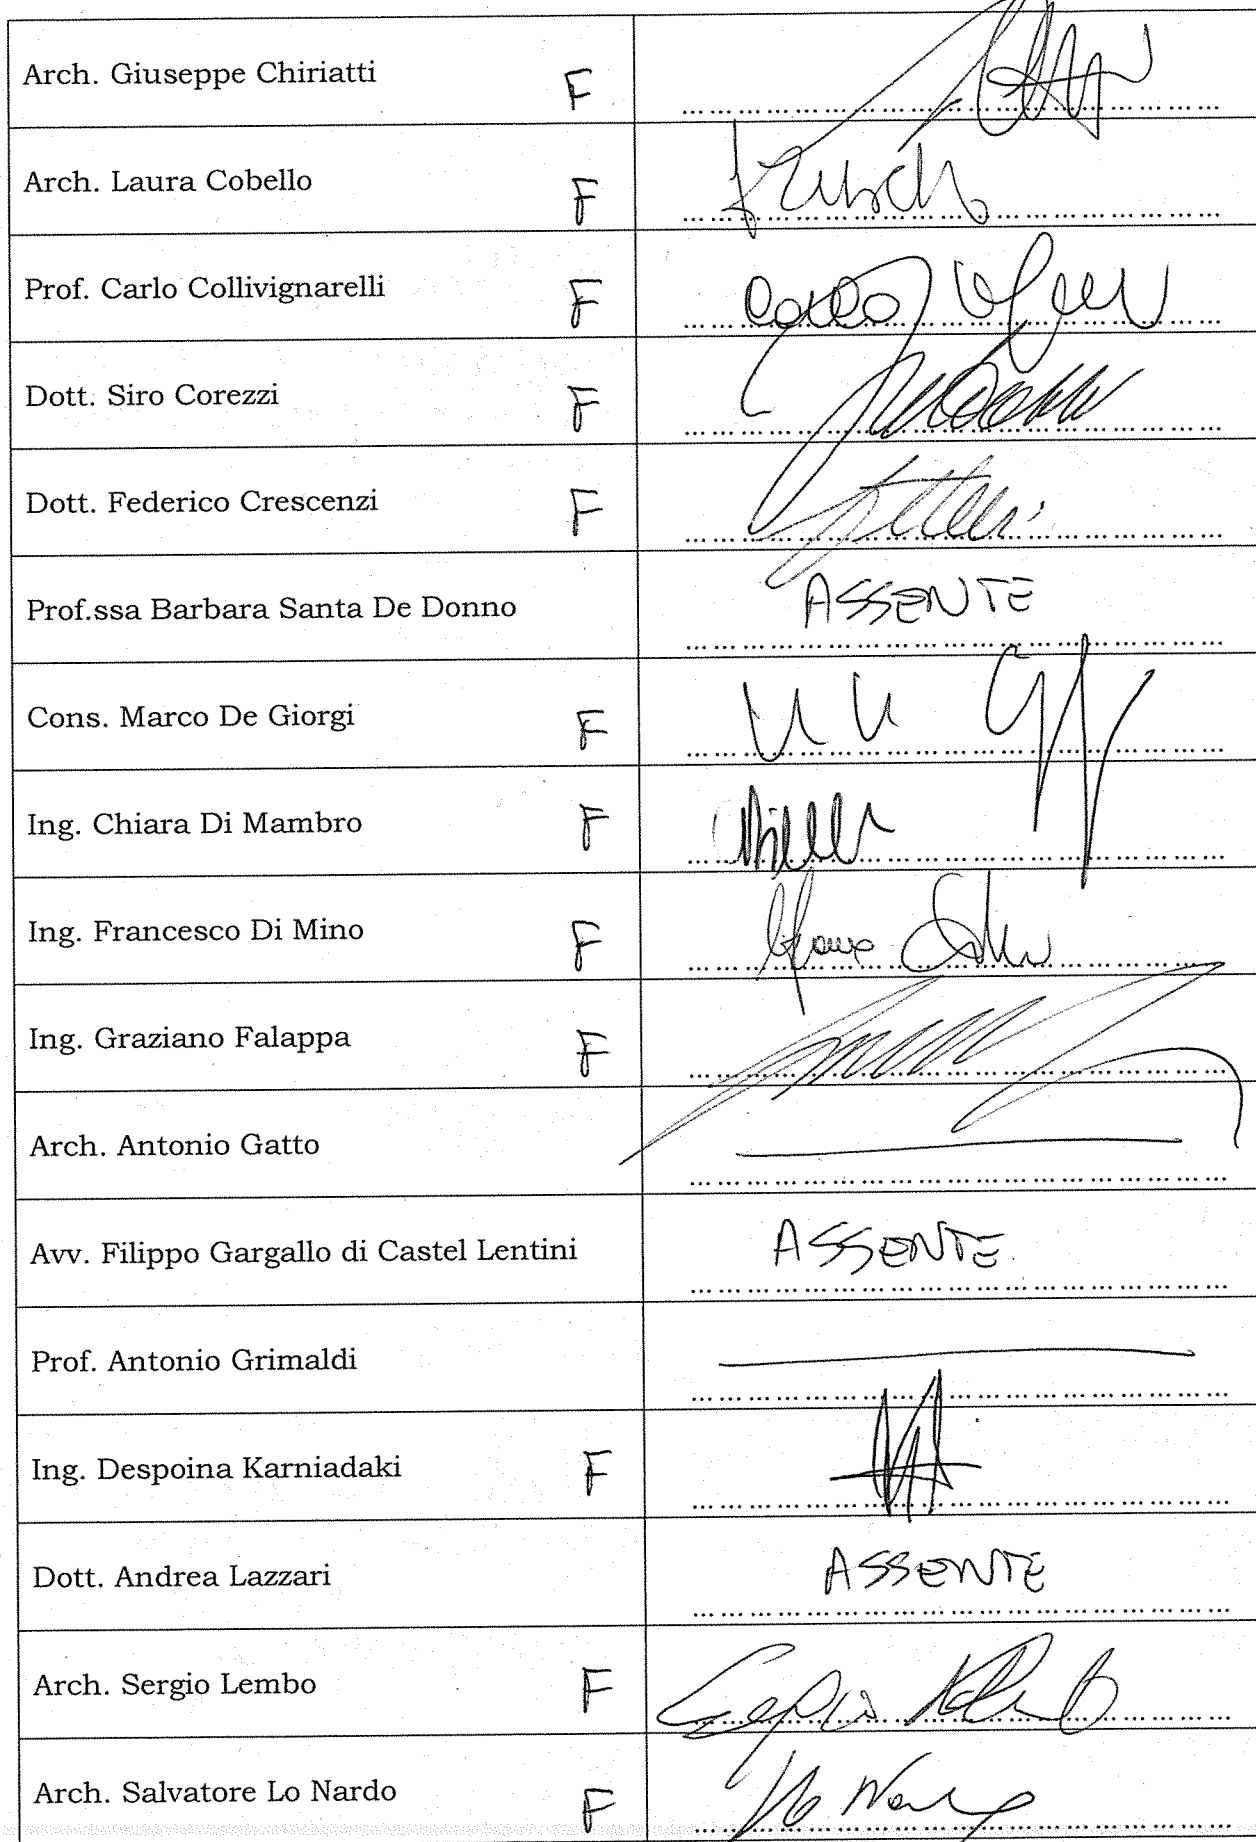 Arch. Giuseppe Chiriatti F
Arch. Laura Cobello F
Prof. Carlo Collivignarelli F Carlo
Dott. Siro Corezzi F
Dott. Federico Crescenzi F
Prof.ssa Barbara Santa De Donno ASSENTE
Cons. Marco De Giorgi F
Ing. Chiara Di Mambro F
Ing. Francesco Di Mino F
Ing. Graziano Falappa F
Arch. Antonio Gatto
Avv. Filippo Gargallo di Castel Lentini ASSENTE
Prof. Antonio Grimaldi
Ing. Despoina Karniadaki F
Dott. Andrea Lazzari ASSENTE
Arch. Sergio Lembo F Sergio
Arch. Salvatore Lo Nardo F